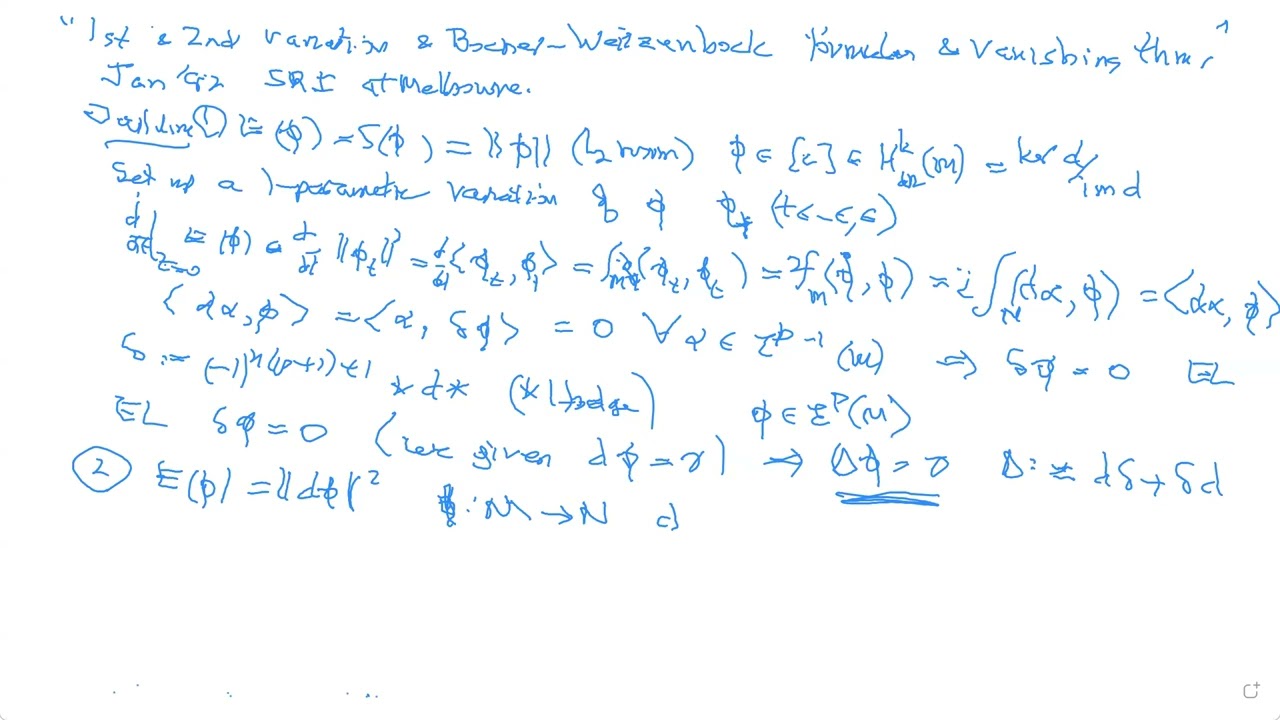 "1st & 2nd variation & Bochner-Weitzenbock formulas & vanishing thms"
Jan '92 SRI at Melbourne.
Outline ① E(φ) = S(φ) = ||φ|| (L2 norm) φ ∈ [c] ∈ H^k_{dR}(M) = ker d/im d
Set up a 1-parametric variation of φ φ_t (t ∈ -ε, ε)
d/dt|_{t=0} E(φ) = d/dt ||φ_t||² = d/dt ⟨φ_t, φ_t⟩ = ∫_M (φ_t, φ_t) = 2∫_M (φ̇, φ) = ∫_M (dα, φ) = ⟨dα, φ⟩
⟨dα, φ⟩ = ⟨α, δφ⟩ = 0 ∀ α ∈ Σ^{p-1}(M) ⇒ δφ = 0 EL
δ := (-1)^{n(p+1)+1} * d * (* Hodge) φ ∈ Σ^p(M)
EL δφ = 0 (we given dφ = 0) → Δφ = 0 Δ := dδ + δd
② E(φ) = ||dφ||² φ : M → N d